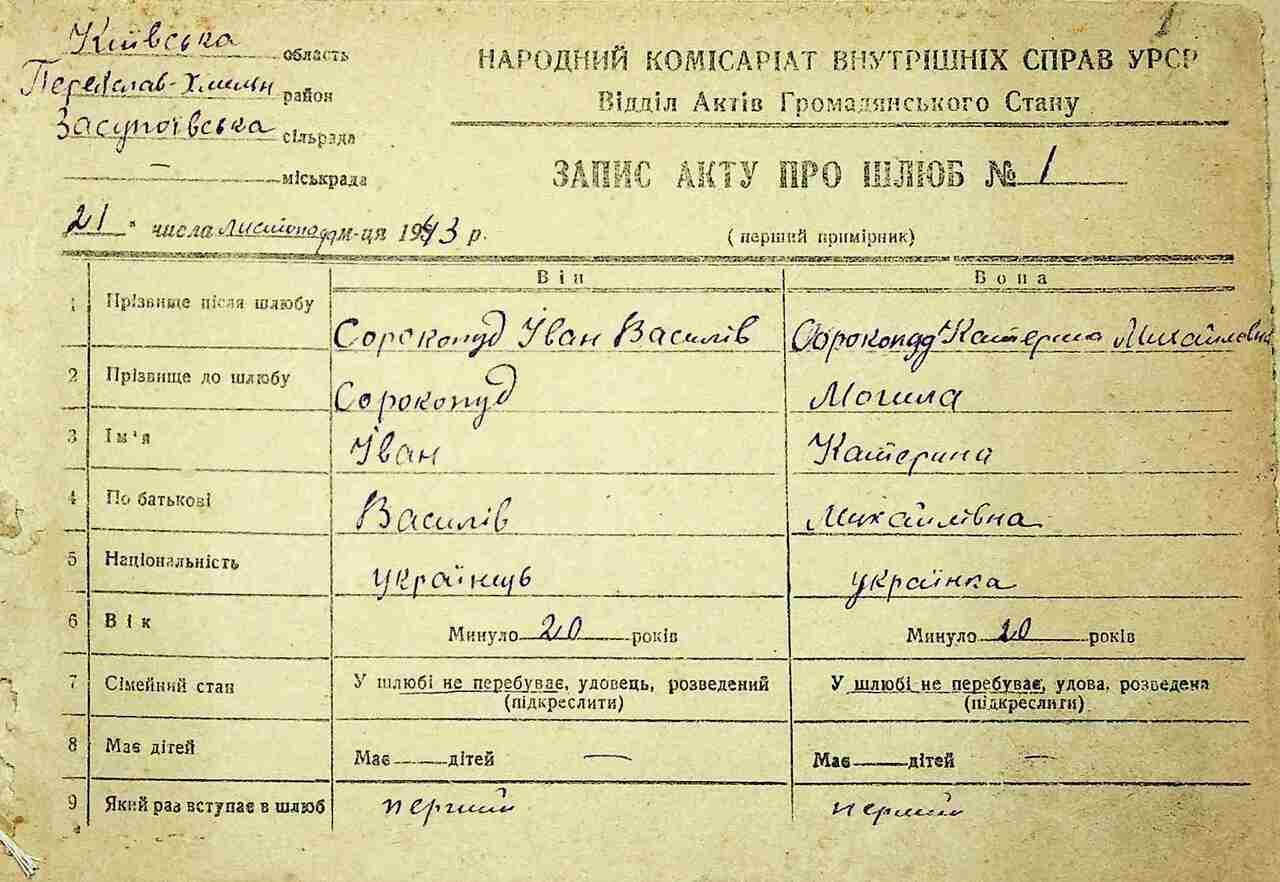 1
Київська область
Переяслав-Хмельн район
Засупоївська сільрада
— міськрада
НАРОДНИЙ КОМІСАРІАТ ВНУТРІШНІХ СПРАВ УРСР
Відділ Актів Громадянського Стану
ЗАПИС АКТУ ПРО ШЛЮБ № 1
21 " числа листопада м-ця 1943 р.
(перший примірник)
Він Вона
1 Прізвище після шлюбу Сорокопуд Іван Василів Сорокопуд Катерина Михайлівна
2 Прізвище до шлюбу Сорокопуд Могила
3 Ім'я Іван Катерина
4 По батькові Василів Михайлівна
5 Національність українць українка
6 Вік Минуло 20 років Минуло 20 років
7 Сімейний стан У шлюбі не перебуває, удовець, розведений У шлюбі не перебуває, удова, розведена
(підкреслити) (підкреслити)
8 Має дітей Має дітей — Має дітей —
9 Який раз вступає в шлюб перший перший